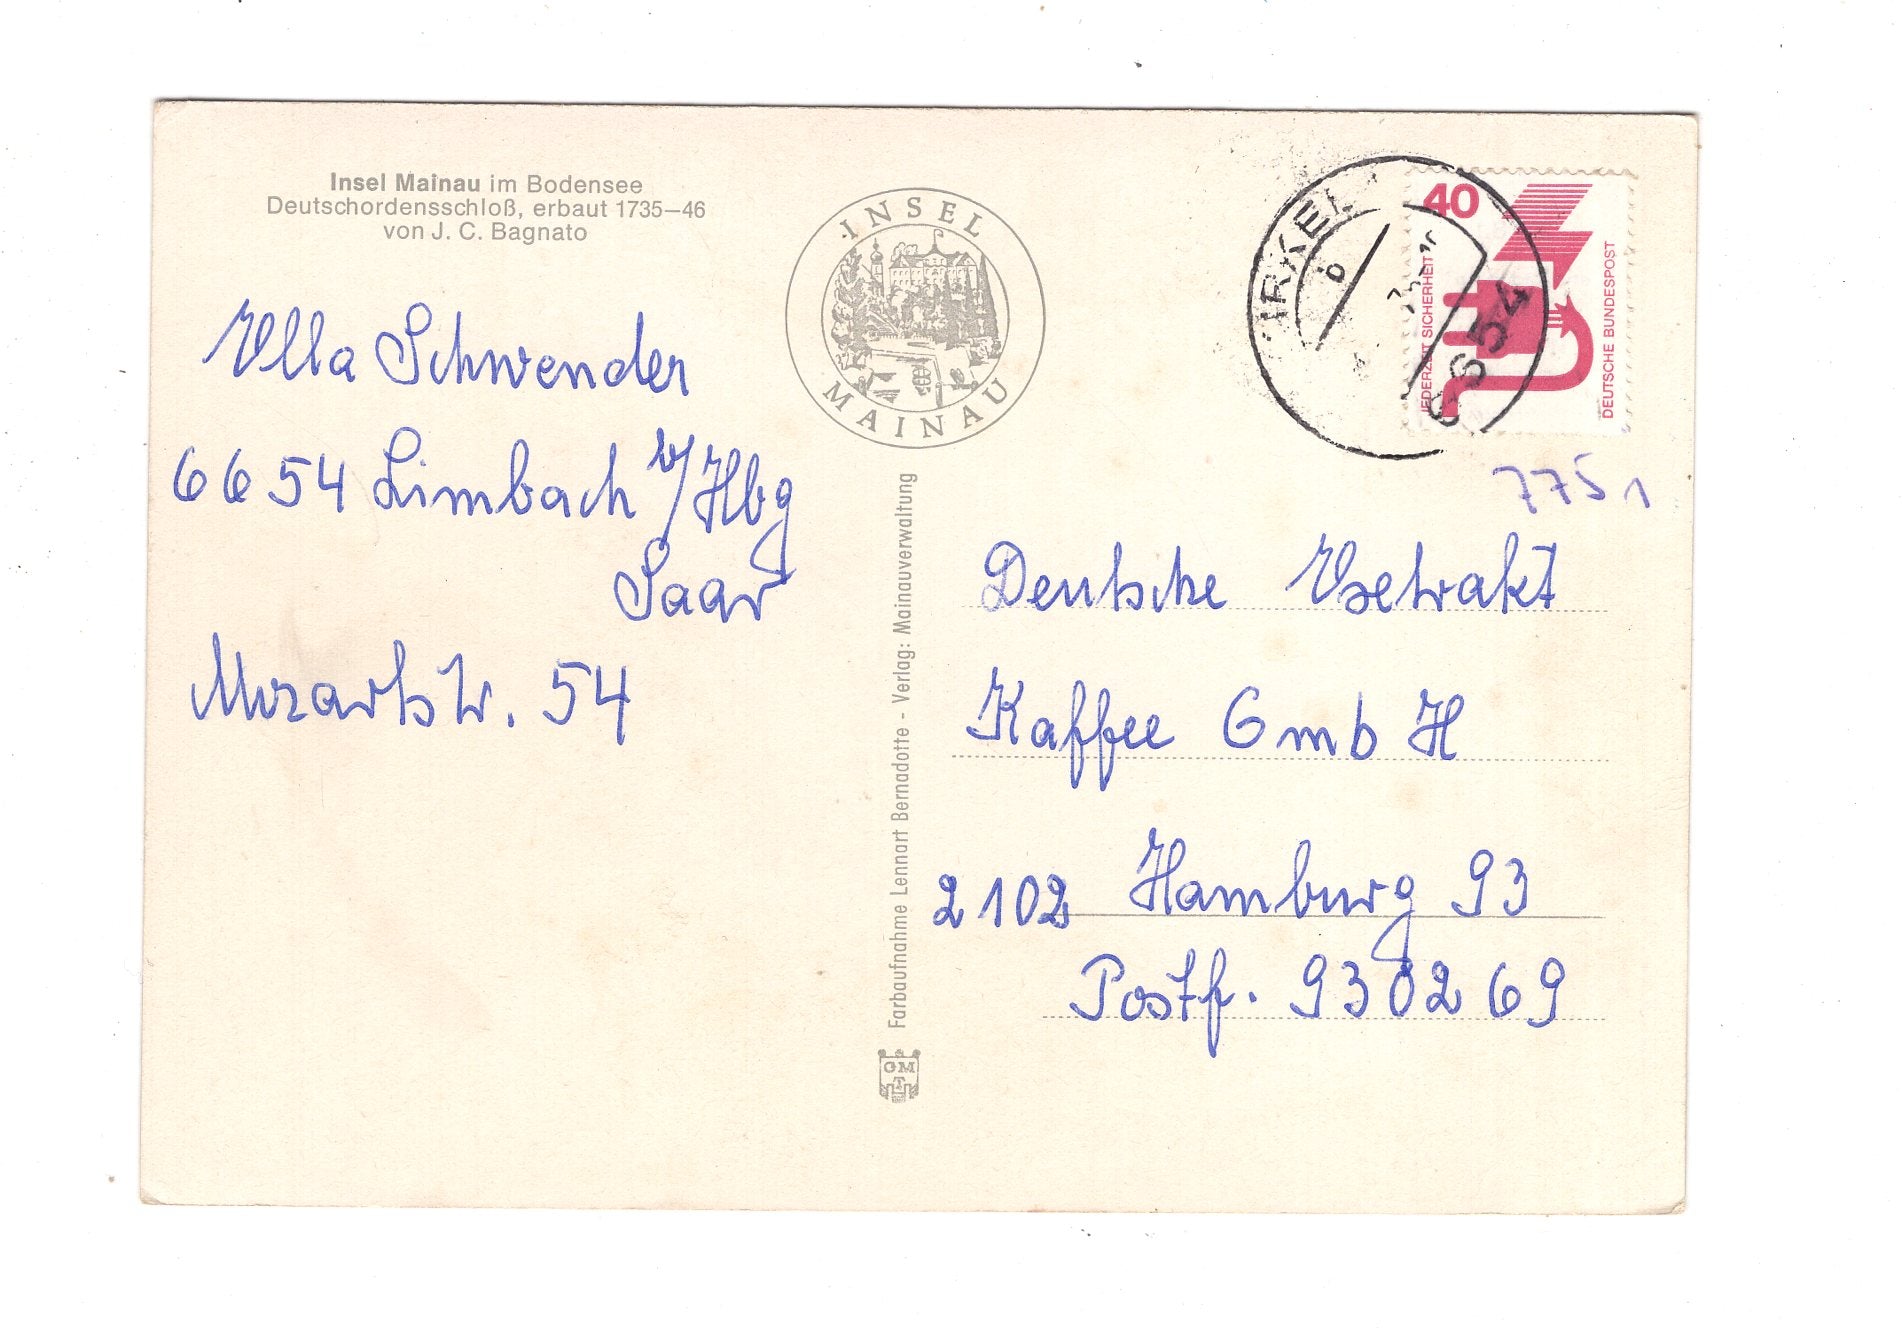 Insel Mainau im Bodensee
Deutschordensschloß, erbaut 1735–46
von J. C. Bagnato
INSEL
MAINAU
Ella Schwender
6654 Limbach b/Hbg
Saar
Mozartstr. 54
Farbaufnahme Lennart Bernadotte - Verlag: Mainauverwaltung
GM
40
JEDERZEIT SICHERHEIT
DEUTSCHE BUNDESPOST
6654
7751
Deutsche Extrakt
Kaffee GmbH
2102 Hamburg 93
Postf. 930269